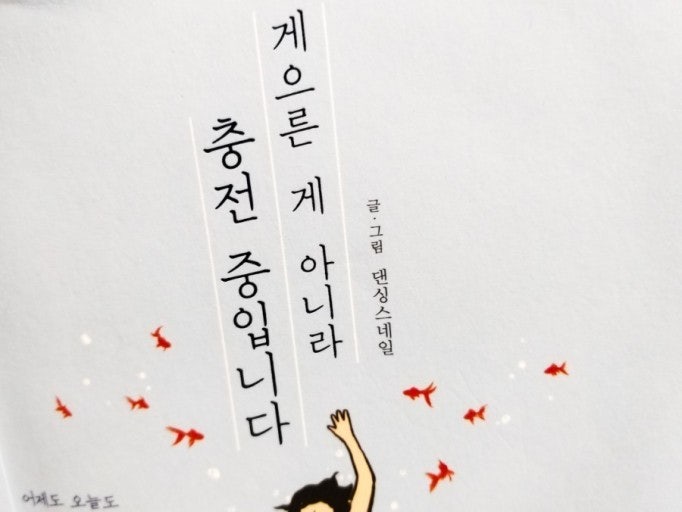 게으른 게 아니라
충전 중입니다
글·그림 댄싱스네일
어제도 오늘도